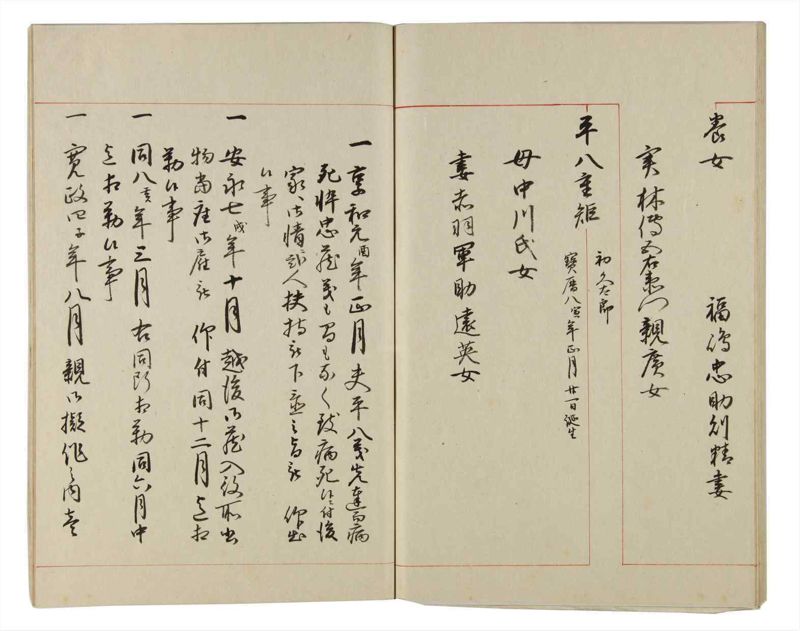 養女
福嶋忠助則精妻
実林傳五右衛門親廣女
平八重矩
初久太郎
寶暦八寅年正月廿一日誕生
母中川氏女
妻赤羽軍助遠英女
一 享和元酉年正月夫平八義先達而病
死悴忠蔵義も間もなく致病死候付後
家江御情弐人扶持被下置之旨被 仰出
候事
一 安永七戌年十月越後御蔵入役所出
物当座御雇被 仰付同十二月迄相
勤候事
一 同八亥年三月右同断相勤同六月中
迄相勤候事
一 寛政四子年八月親御擬作之内壱